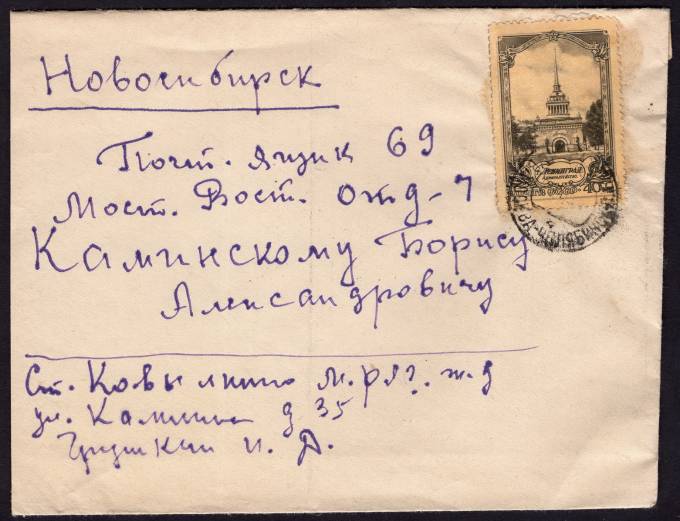 Новосибирск
Почт. ящик 69
Мост. Вост. отд-7
Каминскому Борису
Александровичу
Ст. Ковылкино М. ж.д
ул. Калинина д 35
И. А.
ЛЕНИНГРАД
40